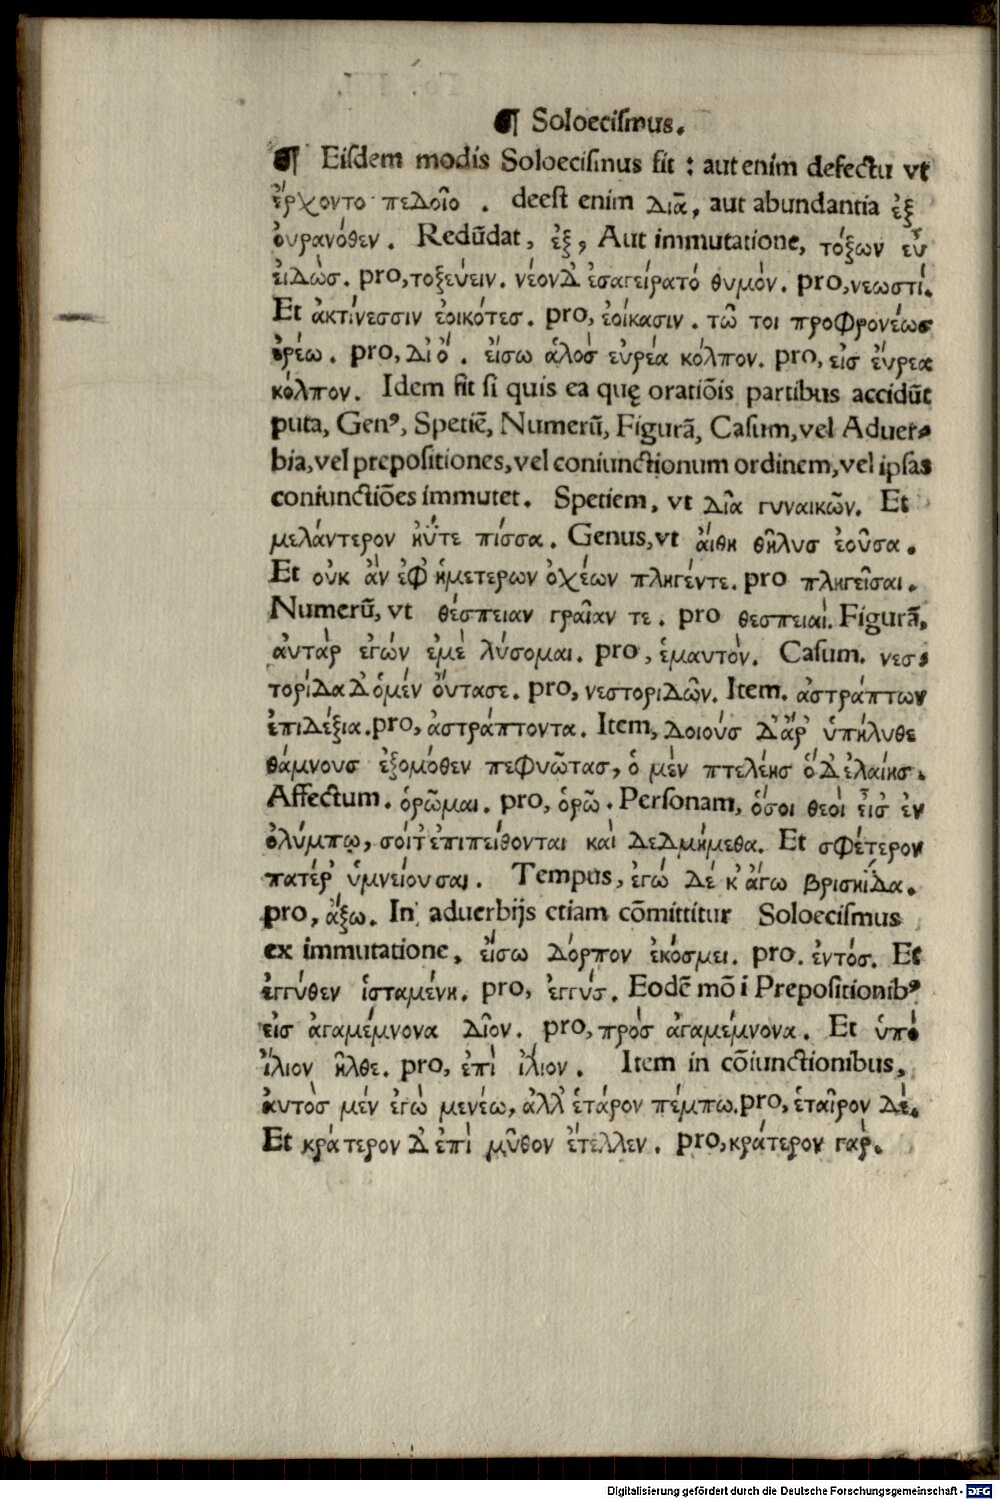 ¶ Soloeciſmus.
¶ Eiſdem modis Soloeciſmus fit : aut enim defectu vt
ἔρχοντο πεδοῖο . deeſt enim διᾶ, aut abundantia ἐξ
ὀυρανόθεν. Redūdat, ἐξ, Aut immutatione, τόξων εὖ
ἐιδὼσ. pro, τοξεύειν. νέον δ ἐσαγείρατό θυμὸν. pro, νεωστί.
Et ἀκτίνεσσιν ἐοικότεσ. pro, ἐοίκασιν. τῶ τοι προφρονέωσ
ἐρέω. pro, δι ὅ . ἔισω ἁλὸσ ἐυρέα κόλπον. pro, ἐισ ἔυρεα
κόλπον. Idem fit ſi quis ea quę oratiōis partibus accidūt
puta, Genꝰ, Spetiē, Numerū, Figurā, Caſum, vel Aduer-
bia, vel prepoſitiones, vel coniunctionum ordinem, vel ipſas
coniunctiōes immutet. Spetiem, vt δῖα γυναικῶν. Et
μελάντερον ἠΰτε πίσσα. Genus, vt ἄιθη θῆλυσ ἐοῦσα.
Et ουκ ἀν ἐφ ἡμετερων ὀχέων πληγέντε. pro πληγεῖσαι.
Numerū, vt θέσπειαν γραῖαν τε. pro θεσπειαὶ. Figurā,
ἀυτὰρ ἐγών ἐμὲ λύσομαι. pro, ἐμαυτὸν. Caſum. νεσ-
τορίδα δ ὁμέν ὄυτασε. pro, νεστοριδῶν. Item. ἀστράπτων
ἐπιδέξια. pro, ἀστράπτοντα. Item, δοιούσ δ ἄρ ὑπήλυθε
θάμνουσ ἐξομόθεν πεφυῶτασ, ὁ μὲν πτελέησ ὁ δ ἐλαίησ.
Affectum. ὁρῶμαι. pro, ὁρῶ. Perſonam, ὅσοι θεοὶ ἐισ ἐν
ὀλύμπῳ, σοί τ ἐπιπείθονται καὶ δεδμήμεθα. Et σφέτερον
πατέρ ὑμνείουσαι. Tempus, ἐγώ δέ κ ἄγω βρισηΐδα.
pro, ἄξω. In aduerbijs etiam cōmittitur Soloeciſmus
ex immutatione, ἔισω δόρπον ἐκόσμει. pro. ἐντόσ. Et
ἐγγύθεν ἱσταμένη. pro, ἐγγύσ. Eodē mō i Prepoſitionibꝰ
ἐισ ἀγαμέμνονα δῖον. pro, πρὸσ ἀγαμέμνονα. Et ὑπὸ
ἴλιον ἦλθε. pro, ἐπὶ ἴλιον. Item in cōiunctionibus,
ἀυτὸσ μέν ἐγὼ μενέω, ἀλλ ἑτάρον πέμπω. pro, ἑταῖρον δὲ.
Et κράτερον δ ἐπὶ μῦθον ἔτελλεν. pro, κράτερον γαρ.
Digitalisierung gefördert durch die Deutsche Forschungsgemeinschaft - DFG